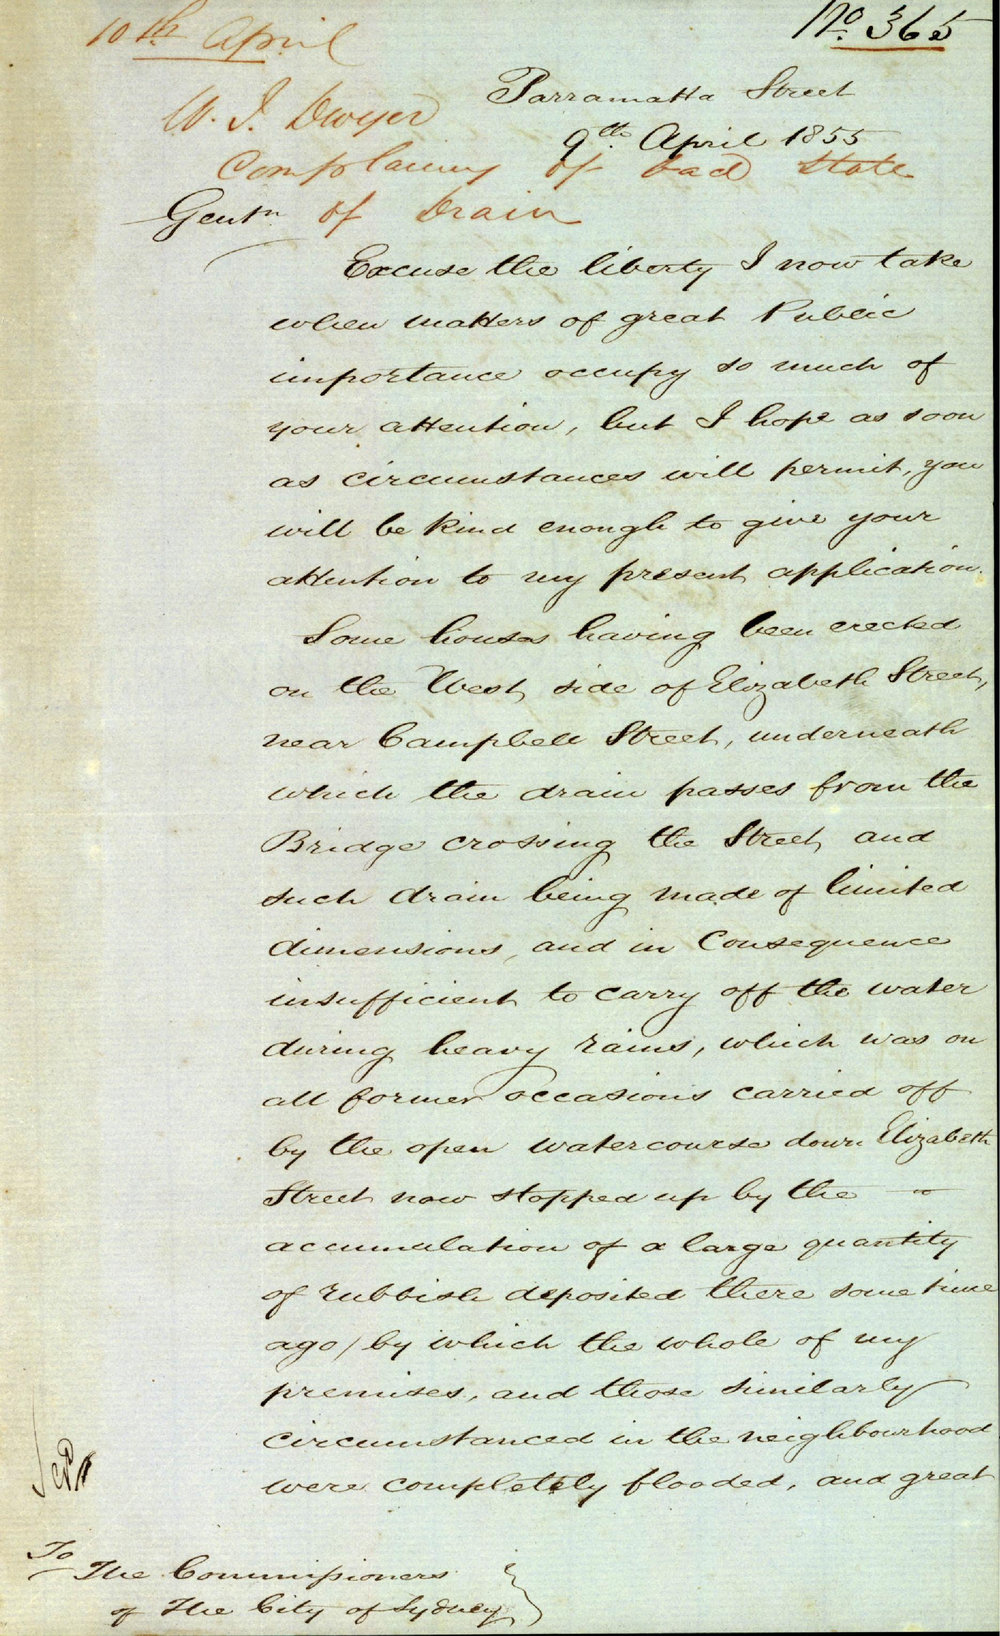 10th April
No. 365
W. J. Dwyer
Parramatta Street
9th April 1855
Complaining of bad state
Gentn
of Drain
Excuse the liberty I now take
when matters of great Public
importance occupy so much of
your attention, but I hope as soon
as circumstances will permit, you
will be kind enough to give your
attention to my present application.
Some houses having been erected
on the West side of Elizabeth Street,
near Campbell Street, underneath
which the drain passes from the
Bridge crossing the Street and
such drain being made of limited
dimensions, and in Consequence
insufficient to carry off the water
during heavy rains, which was on
all former occasions carried off
by the open watercourse down Elizabeth
Street now stopped up by the —
accumulation of a large quantity
of rubbish deposited there some time
ago / by which the whole of my
premises, and those similarly
circumstanced in the neighbourhood
were completely flooded, and great
To
The Commissioners
of The City of Sydney